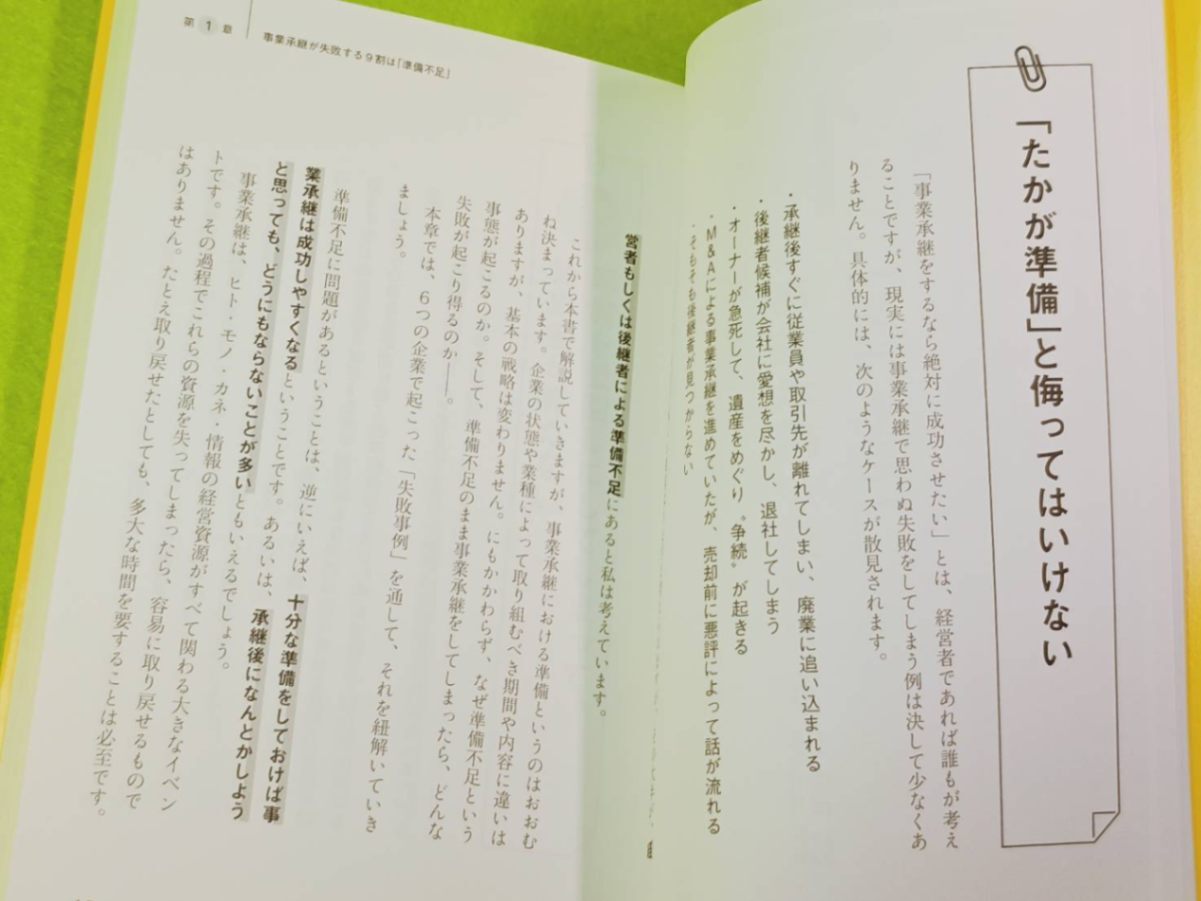 「たかが準備」と侮ってはいけない
「事業承継をするなら絶対に成功させたい」とは、経営者であれば誰もが考え
ることですが、現実には事業承継で思わぬ失敗をしてしまう例は決して少なくあ
りません。具体的には、次のようなケースが散見されます。
・承継後すぐに従業員や取引先が離れてしまい、廃業に追い込まれる
・後継者候補が会社に愛想を尽かし、退社してしまう
・オーナーが急死して、遺産をめぐり〝争続〟が起きる
・M&Aによる事業承継を進めていたが、売却前に悪評によって話が流れる
・そもそも後継者が見つからない
営者もしくは後継者による準備不足にあると私は考えています。
第1章 事業承継が失敗する9割は「準備不足」
これから本書で解説していきますが、事業承継における準備というのはおおむ
ね決まっています。企業の状態や業種によって取り組むべき期間や内容に違いは
ありますが、基本の戦略は変わりません。にもかかわらず、なぜ準備不足という
事態が起こるのか。そして、準備不足のまま事業承継をしてしまったら、どんな
失敗が起こり得るのか――。
本章では、6つの企業で起こった「失敗事例」を通して、それを紐解いていき
ましょう。
準備不足に問題があるということは、逆にいえば、十分な準備をしておけば事
業承継は成功しやすくなるということです。あるいは、承継後になんとかしよう
と思っても、どうにもならないことが多いともいえるでしょう。
事業承継は、ヒト・モノ・カネ・情報の経営資源がすべて関わる大きなイベン
トです。その過程でこれらの資源を失ってしまったら、容易に取り戻せるもので
はありません。たとえ取り戻せたとしても、多大な時間を要することは必至です。